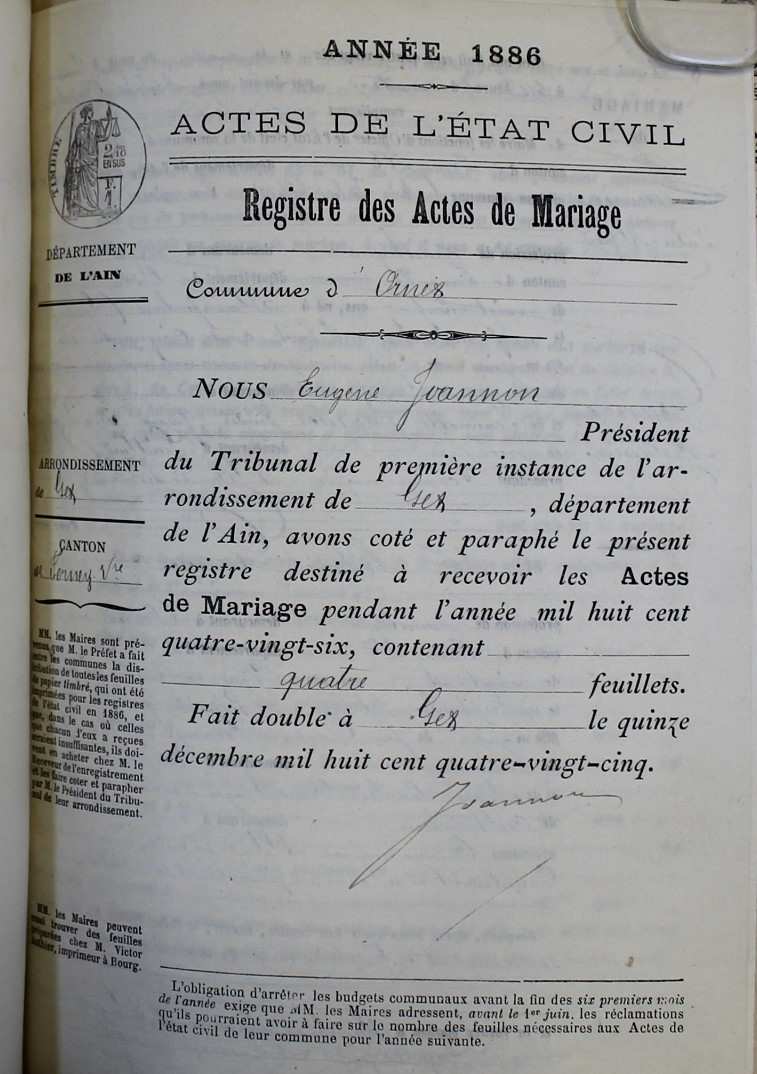 ANNÉE 1886
ACTES DE L'ÉTAT CIVIL
Registre des Actes de Mariage
Commune d'Ornex
TIMBRE
2/10
EN SUS
F.
1.
DÉPARTEMENT
DE L'AIN
ARRONDISSEMENT
de Gex
CANTON
de Ferney Vre
MM. les Maires sont pré-
venus que M. le Préfet a fait
entre les communes la dis-
tribution de toutes les feuilles
de papier timbré, qui ont été
imprimées pour les registres
de l'état civil en 1886, et
que, dans le cas où celles
que chacun d'eux a reçues
seraient insuffisantes, ils doi-
vent en acheter chez M. le
Receveur de l'enregistrement
et les faire coter et parapher
par M. le Président du Tribu-
nal de leur arrondissement.
MM. les Maires peuvent
aussi trouver des feuilles
préparées chez M. Victor
imprimeur à Bourg.
NOUS Eugène Joannon
Président
du Tribunal de première instance de l'ar-
rondissement de Gex, département
de l'Ain, avons coté et paraphé le présent
registre destiné à recevoir les Actes
de Mariage pendant l'année mil huit cent
quatre-vingt-six, contenant
quatre feuillets.
Fait double à Gex le quinze
décembre mil huit cent quatre-vingt-cinq.
Joannon
L'obligation d'arrêter les budgets communaux avant la fin des six premiers mois
de l'année exige que MM. les Maires adressent, avant le 1er juin, les réclamations
qu'ils pourraient avoir à faire sur le nombre des feuilles nécessaires aux Actes de
l'état civil de leur commune pour l'année suivante.